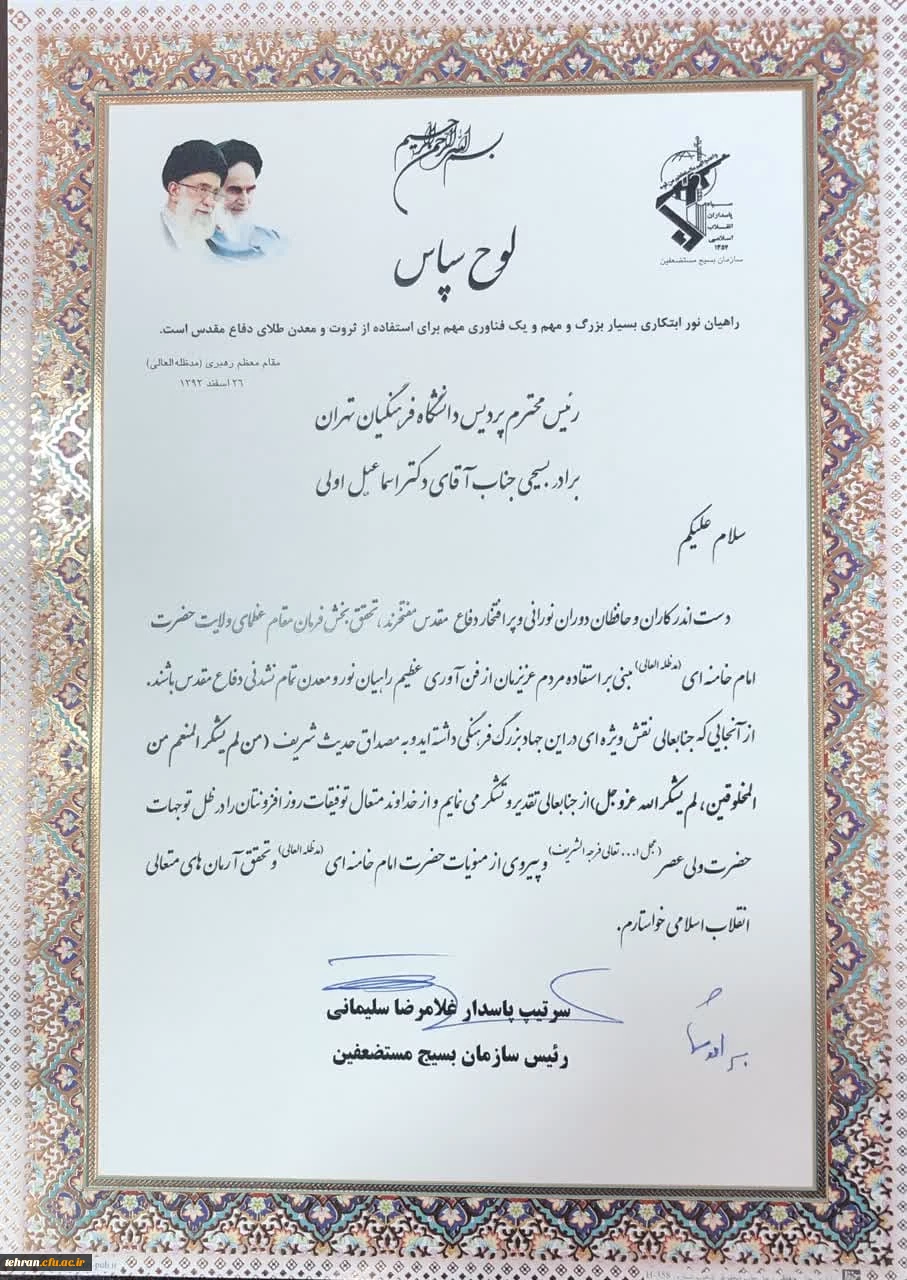 بسم الله الرحمن الرحیم
سپاه
پاسداران
انقلاب
اسلامی
۱۳۵۷
سازمان بسیج مستضعفین
لوح سپاس
راهیان نور ابتکاری بسیار بزرگ و مهم و یک فناوری مهم برای استفاده از ثروت و معدن طلای دفاع مقدس است.
مقام معظم رهبری (مدظله العالی)
۲۶ اسفند ۱۳۹۲
رئیس محترم پردیس دانشگاه فرهنگیان تهران
برادر بسیجی جناب آقای دکتر اسماعیل اولی
سلام علیکم
دست اندرکاران و حافظان دوران نورانی و پر افتخار دفاع مقدس مفتخرند، تحقق بخش فرمان مقام عظمای ولایت حضرت
امام خامنه ای (مدظله العالی) مبنی بر استفاده مردم عزیزمان از فن آوری عظیم راهیان نور و معدن تمام نشدنی دفاع مقدس باشند.
از آنجایی که جنابعالی نقش ویژه ای در این جهاد بزرگ فرهنگی داشته اید و به مصداق حدیث شریف (من لم یشکر المنعم من
المخلوقین، لم یشکر الله عزوجل) از جنابعالی تقدیر و تشکر می نمایم و از خداوند متعال توفیقات روز افزونتان را در ظل توجهات
حضرت ولی عصر (عجل ا... تعالی فرجه الشریف) و پیروی از منویات حضرت امام خامنه ای (مدظله العالی) و تحقق آرمان های متعالی
انقلاب اسلامی خواستارم.
سرتیپ پاسدار غلامرضا سلیمانی
رئیس سازمان بسیج مستضعفین
tehran.cfu.ac.ir
H-358